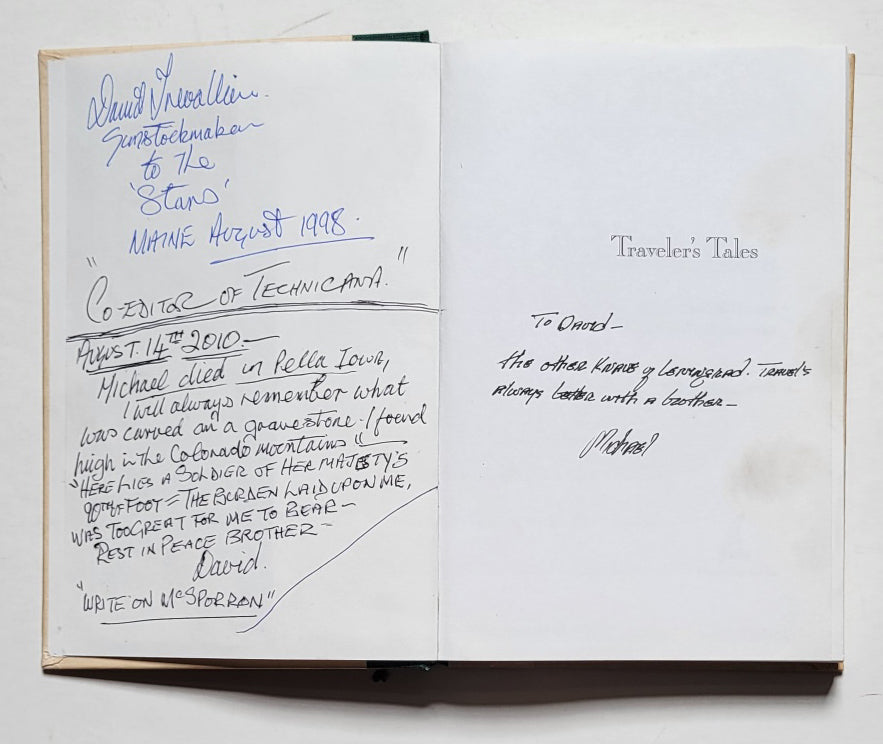 David Trevallion.
Gunstockmaker
to the
'Stars'
MAINE August 1998.
"Co-EDITOR OF TECHNICANA."
AUGUST. 14TH 2010.—
Michael died in Pella Iowa,
I will always remember what
was carved on a gravestone I found
high in the Colorado mountains "—
"HERE LIES A SOLDIER OF HER MAJESTY'S
90TH OF FOOT = THE BURDEN LAID UPON ME,
WAS TOO GREAT FOR ME TO BEAR—
REST IN PEACE BROTHER—
David.
"WRITE ON McSPORRAN"
Traveler's Tales
To David—
the other Knave of Leningrad. Travel's
always better with a brother—
Michael